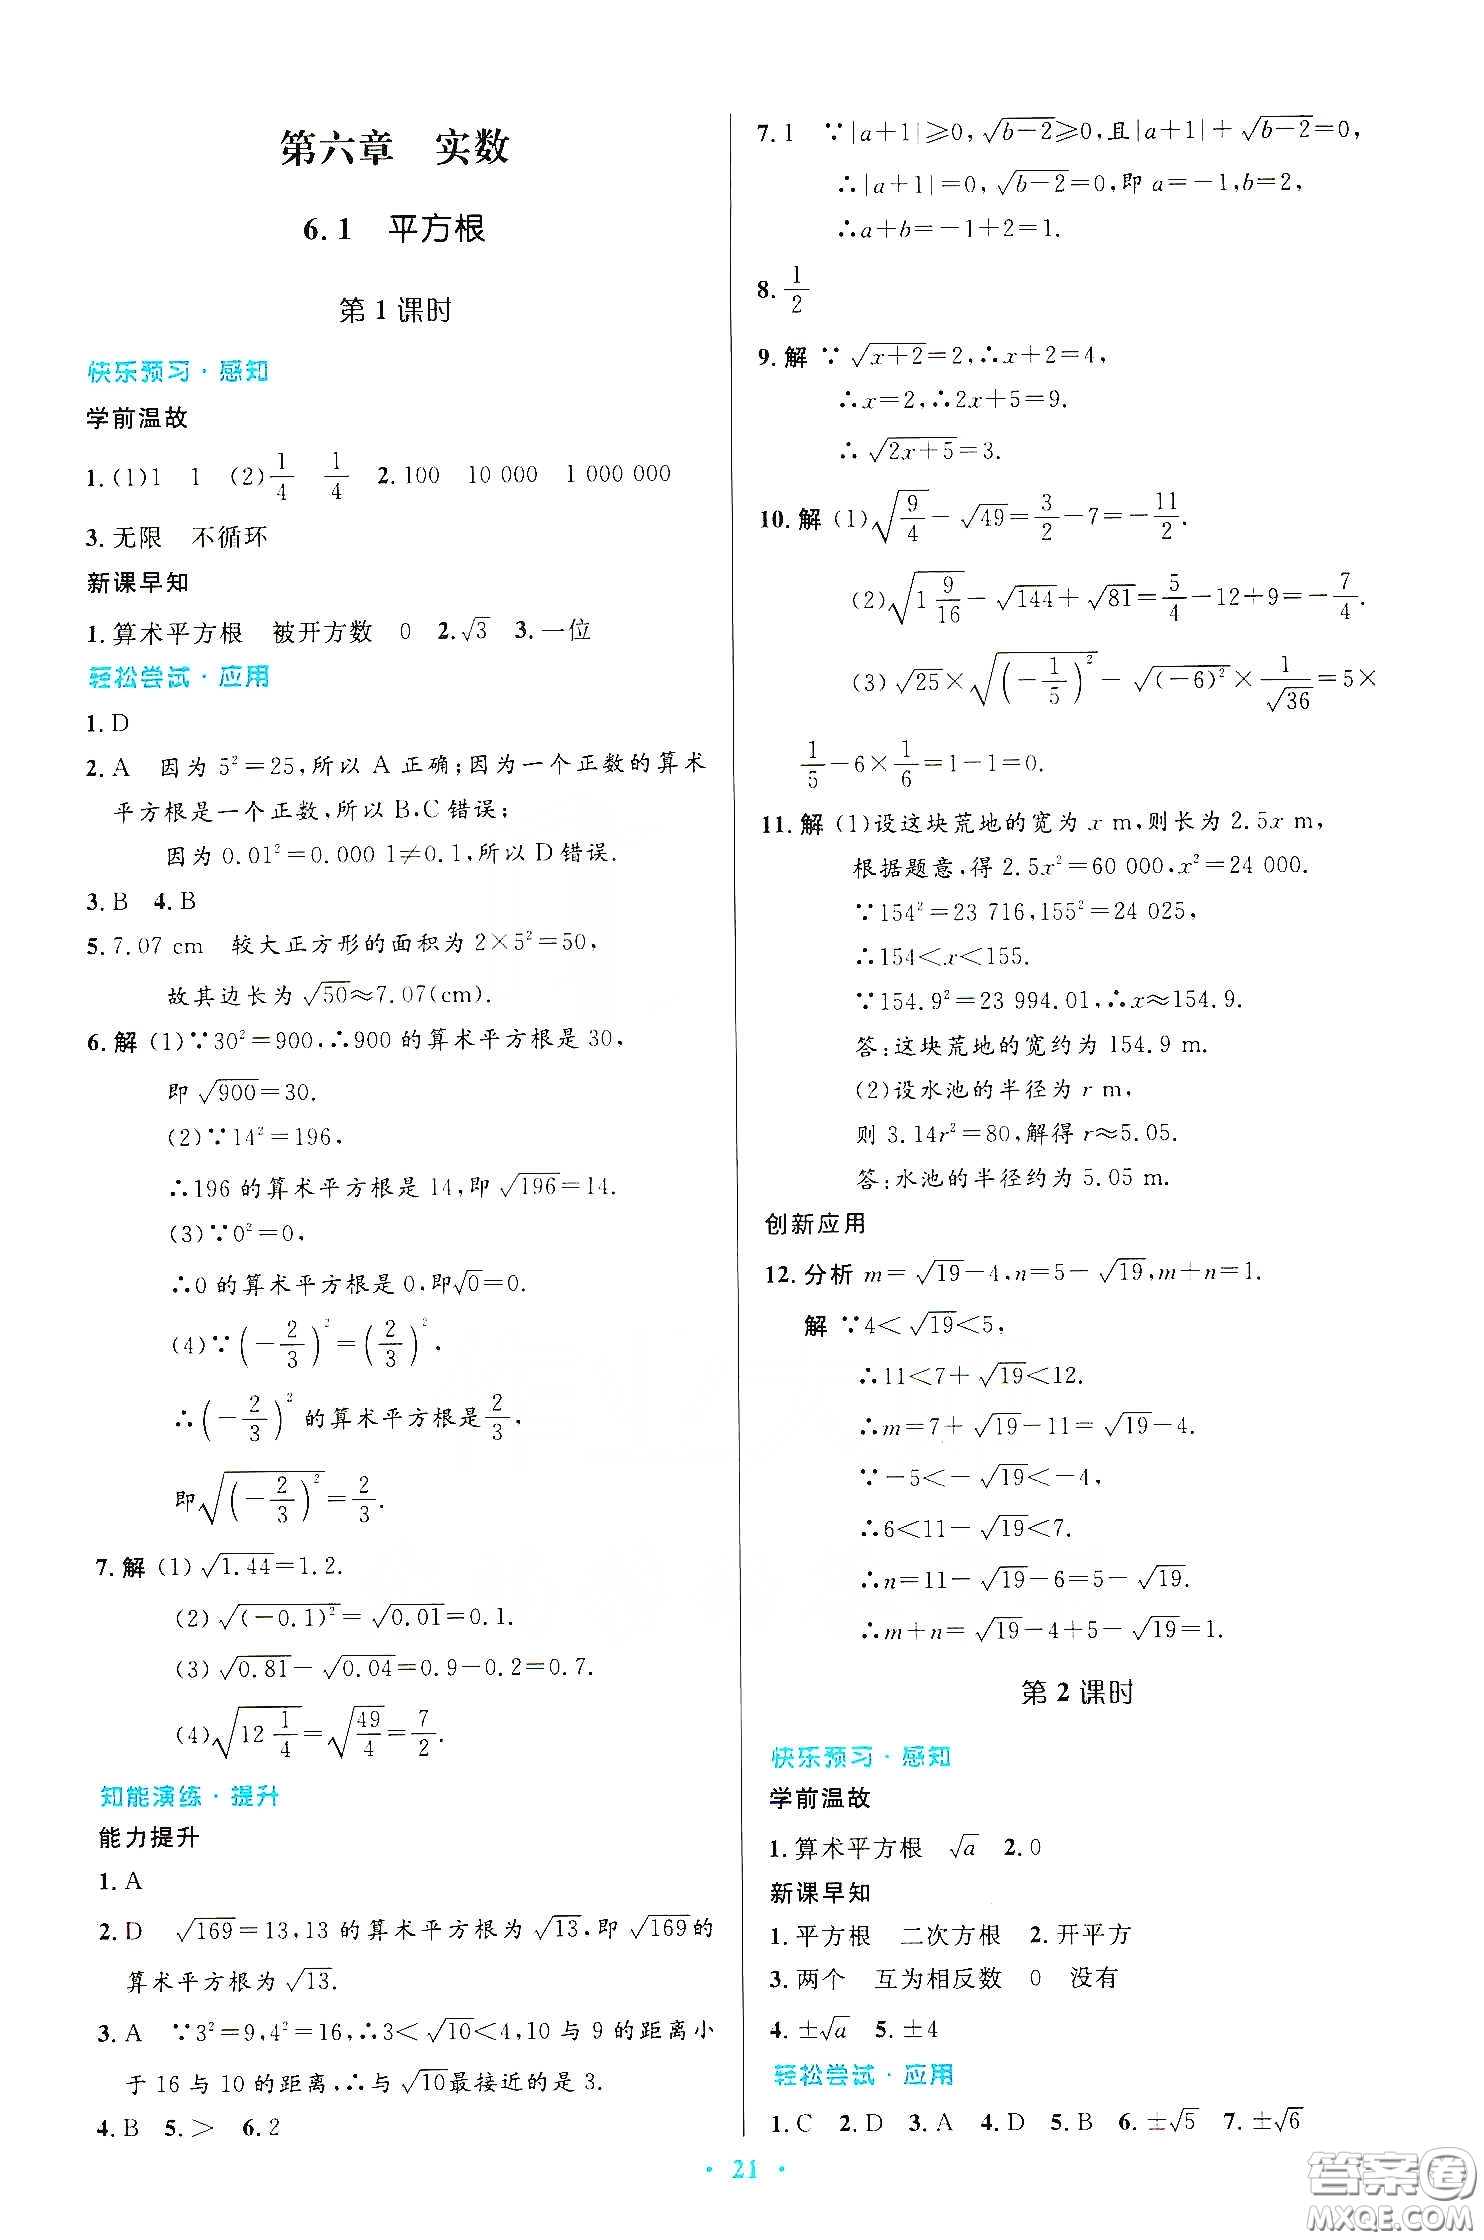 第六章 实数
6.1 平方根
第1课时
快乐预习·感知
学前温故
1.(1)1 1 (2)1/4 1/4 2.100 10 000 1 000 000
3.无限 不循环
新课早知
1.算术平方根 被开方数 0 2.√3 3.一位
轻松尝试·应用
1.D
2.A 因为 5²=25,所以 A 正确;因为一个正数的算术
平方根是一个正数,所以 B,C 错误;
因为 0.01²=0.000 1≠0.1,所以 D 错误.
3.B 4.B
5.7.07 cm 较大正方形的面积为 2×5²=50,
故其边长为 √50≈7.07(cm).
6.解 (1)∵30²=900,∴900 的算术平方根是 30,
即 √900=30.
(2)∵14²=196,
∴196 的算术平方根是 14,即 √196=14.
(3)∵0²=0,
∴0 的算术平方根是 0,即√0=0.
(4)∵(-2/3)²=(2/3)²,
∴(-2/3)² 的算术平方根是 2/3,
即√((-2/3)²)=2/3.
7.解 (1)√1.44=1.2.
(2)√((-0.1)²)=√0.01=0.1.
(3)√0.81-√0.04=0.9-0.2=0.7.
(4)√(12 1/4)=√(49/4)=7/2.
知能演练·提升
能力提升
1.A
2.D √169=13,13 的算术平方根为 √13,即 √169的
算术平方根为 √13.
3.A ∵3²=9,4²=16,∴3<√10<4,10 与 9 的距离小
于 16 与 10 的距离,∴与√10最接近的是 3.
4.B 5.> 6.2
7.1 ∵|a+1|≥0,√(b-2)≥0,且|a+1|+√(b-2)=0,
∴|a+1|=0,√(b-2)=0,即 a=-1,b=2,
∴a+b=-1+2=1.
8.1/2
9.解 ∵√(x+2)=2,∴x+2=4,
∴x=2,∴2x+5=9.
∴√(2x+5)=3.
10.解 (1)√(9/4)-√49=3/2-7=-11/2.
(2)√(1 9/16)-√144+√81=5/4-12+9=-7/4.
(3)√25×√((-1/5)²)-√((-6)²)×1/√36=5×
1/5-6×1/6=1-1=0.
11.解 (1)设这块荒地的宽为 x m,则长为 2.5x m,
根据题意,得 2.5x²=60 000,x²=24 000.
∵154²=23 716,155²=24 025,
∴154<x<155.
∵154.9²=23 994.01,∴x≈154.9.
答:这块荒地的宽约为 154.9 m.
(2)设水池的半径为 r m,
则 3.14r²=80,解得 r≈5.05.
答:水池的半径约为 5.05 m.
创新应用
12.分析 m=√19-4,n=5-√19,m+n=1.
解 ∵4<√19<5,
∴11<7+√19<12.
∴m=7+√19-11=√19-4.
∵-5<-√19<-4,
∴6<11-√19<7.
∴n=11-√19-6=5-√19.
∴m+n=√19-4+5-√19=1.
第2课时
快乐预习·感知
学前温故
1.算术平方根 √a 2.0
新课早知
1.平方根 二次方根 2.开平方
3.两个 互为相反数 0 没有
4.±√a 5.±4
轻松尝试·应用
1.C 2.D 3.A 4.D 5.B 6.±√5 7.±√6
· 21 ·
答案圈
MXQE.COM